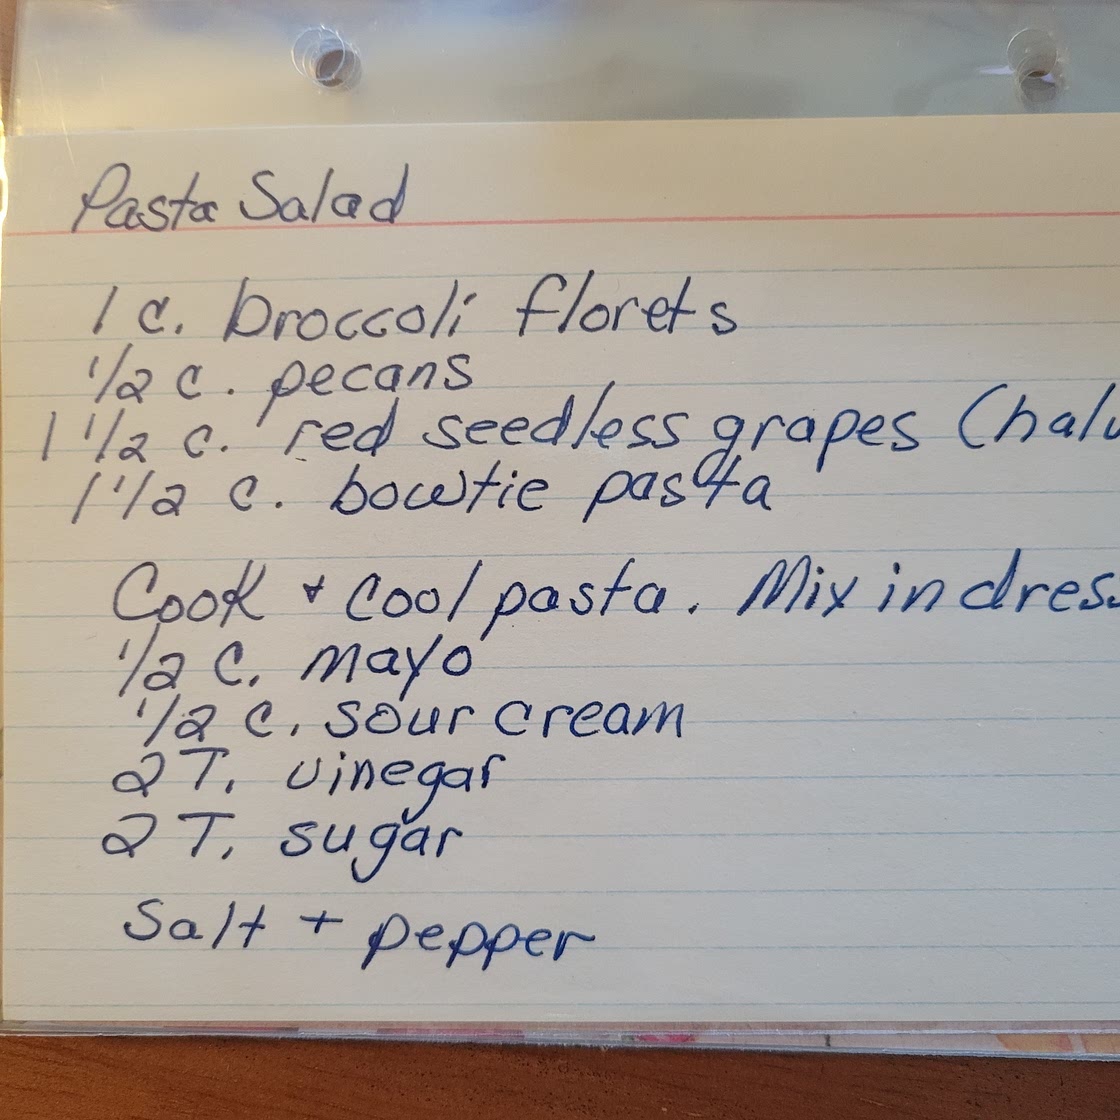 Pasta Salad
1 c. broccoli florets
1/2 c. pecans
1 1/2 c. red seedless grapes
1 1/2 c. bowtie pasta
Cook + cool pasta. Mix in
1/2 c. mayo
1/2 c. sour cream
2 T. vinegar
2 T. sugar
Salt + pepper